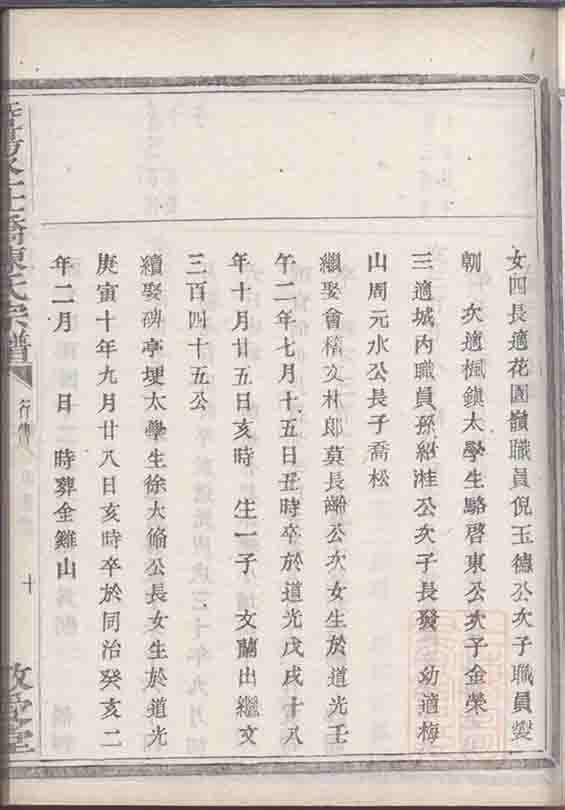 女四長適花園嶺職員倪玉德公次子職員製
朝　次適楓鎭太學生駱啓東公次子金榮
三適城內職員孫紹溎公次子長發　幼適梅
山周元水公長子喬松
繼娶會稽文林郎莫長齡公次女生於道光壬
午二年七月十五日丑時卒於道光戊戌十八
年十月廿五日亥時　生一子　文蘭出繼文
三百四十五公
續娶碑亭埂太學生徐大脩公長女生於道光
庚寅十年九月廿八日亥時卒於同治癸亥二
年二月　日　時葬金雞山
橋陳氏宗譜
行傳
十